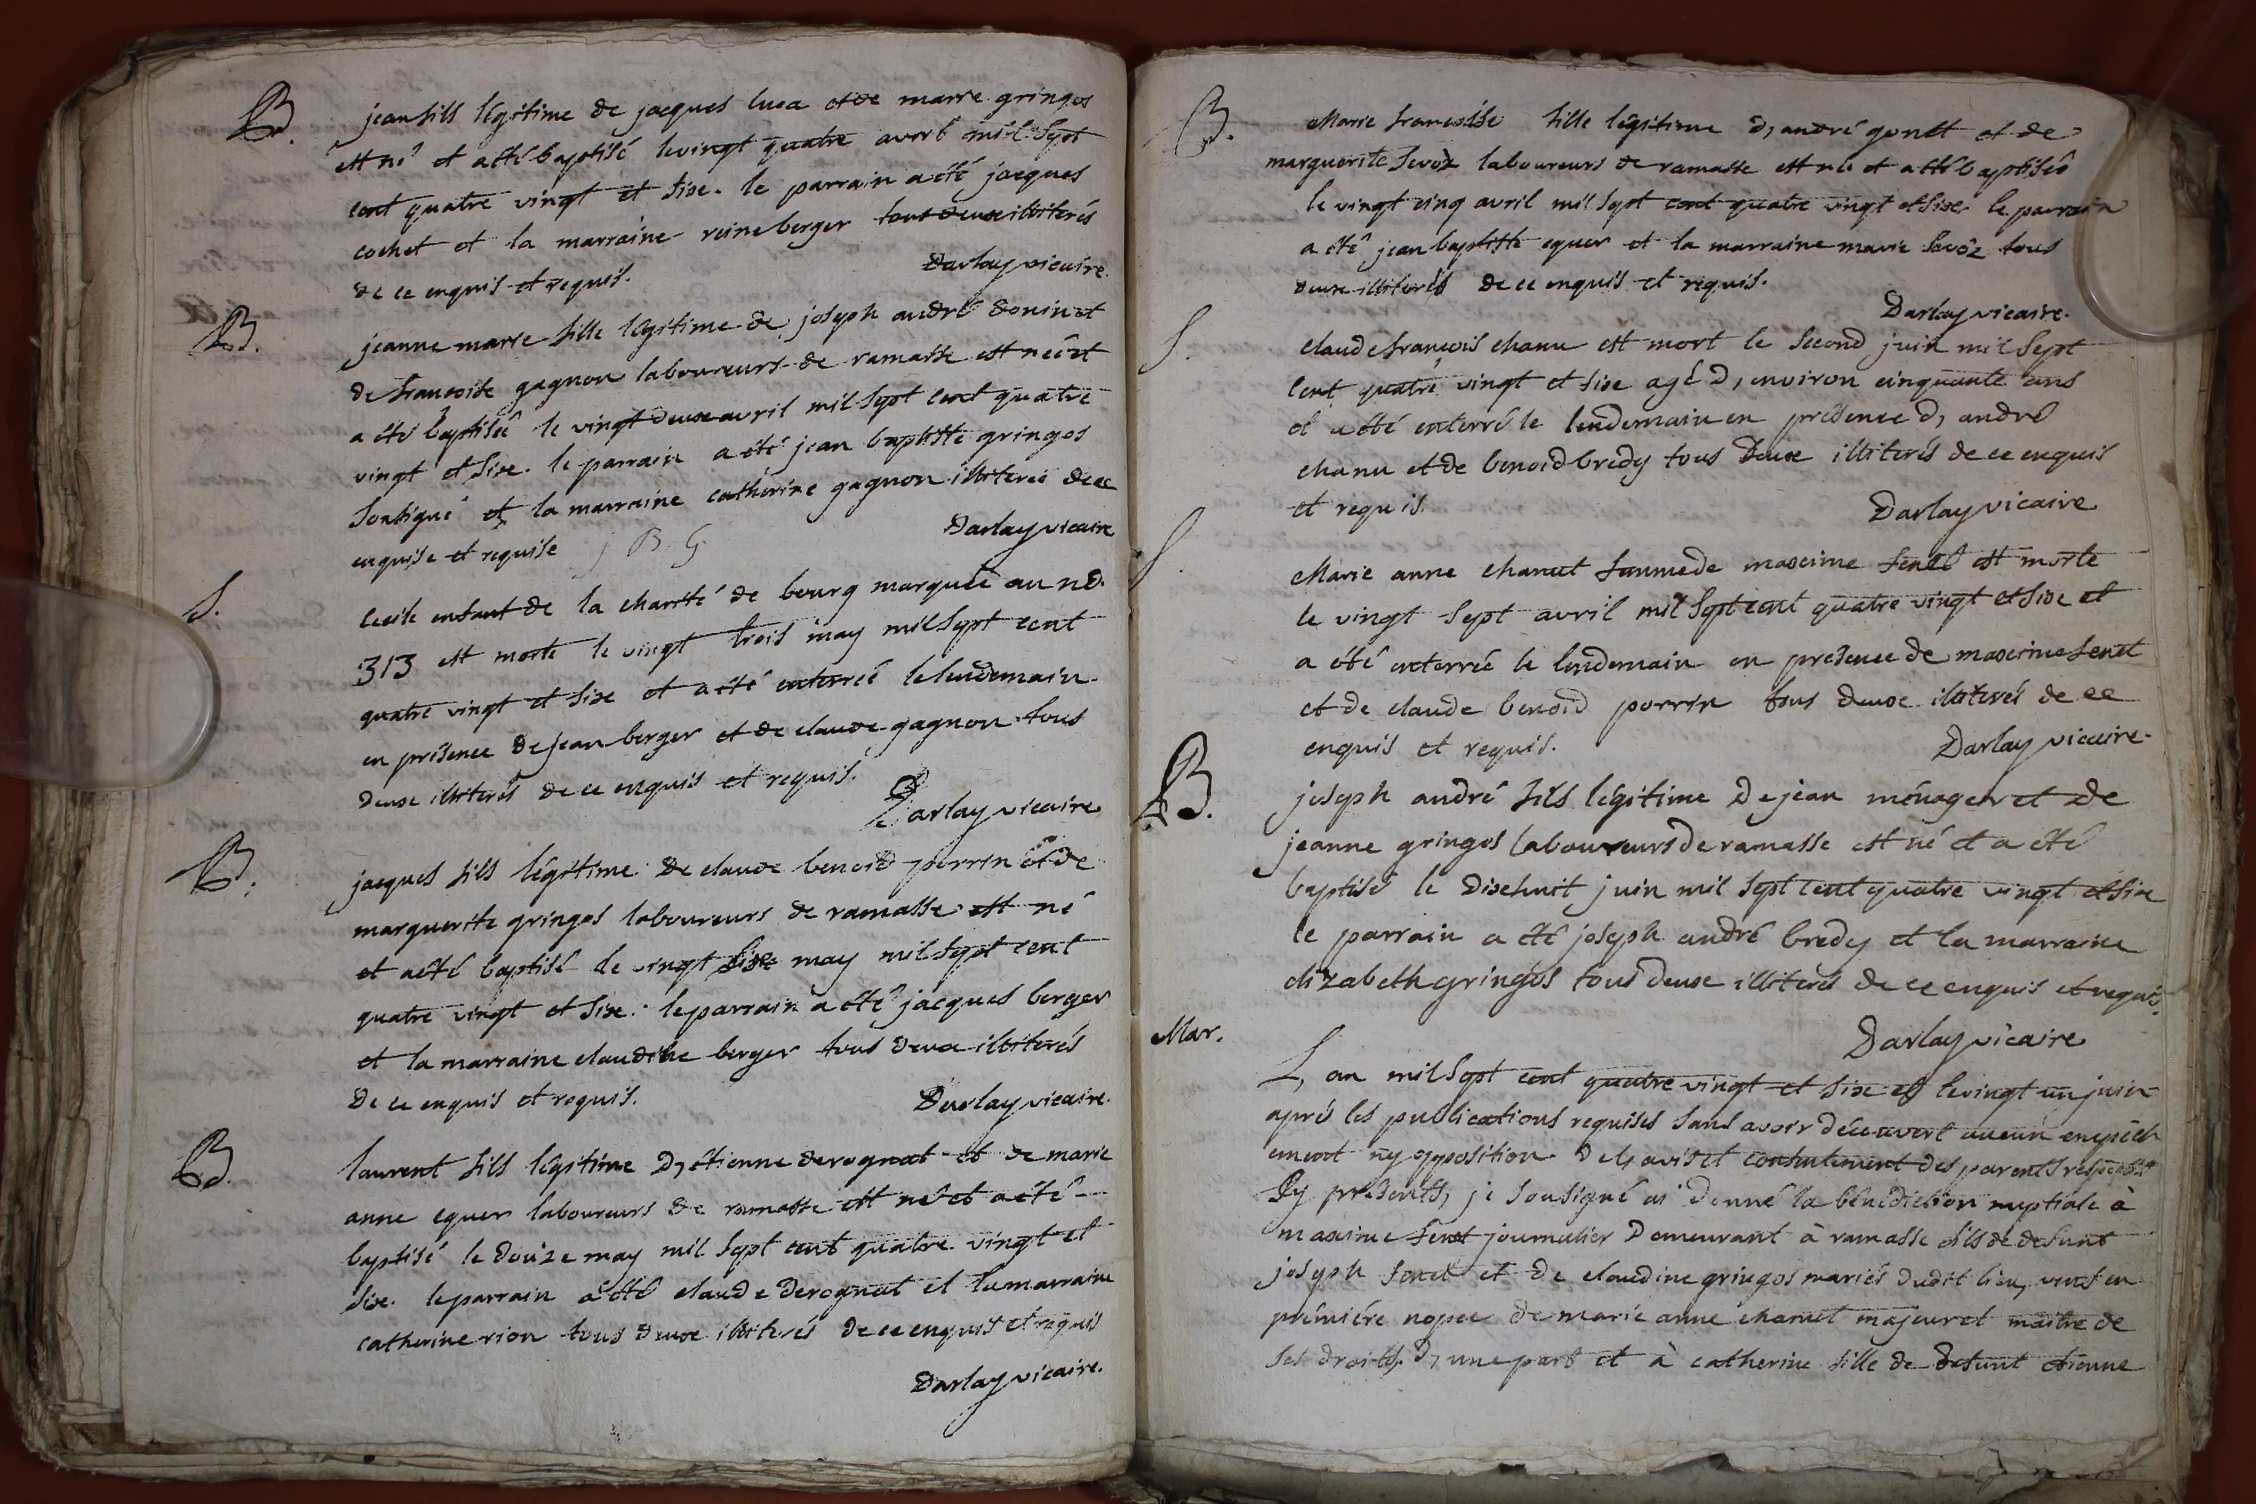 B. jean fils légitime de jacques luca et de marie gringos
est né et a été baptisé le vingt quatre avril mil sept
cent quatre vingt et sixe. le parrain a été jacques
cochet et la marraine reine berger tous deuxe illiterés
de ce enquis et requis. Darlay vicaire.
B. jeanne marie fille légitime de joseph andré donin et
de francoise gagnon laboureurs de ramasse est née et
a été baptisée le vingt deuxe avril mil sept cent quatre
vingt et sixe. le parrain a été jean baptiste gringos
soussigné et la marraine catherine gagnon illiterée de ce
enquise et requise j B. G. Darlay vicaire
S. Cecile enfant de la charité de bourg marquée au no.
313 est morte le vingt trois may mil sept cent
quatre vingt et sixe et a été enterrée le lendemain
en présence de jean berger et de claude gagnon tous
deuxe illiterés de ce enquis et requis.
Darlay vicaire
B. jacques fils légitime de claude benoid perrin et de
marguerite gringos laboureurs de ramasse est né
et a été baptisé le vingt sixe may mil sept cent
quatre vingt et sixe. le parrain a été jacques berger
et la marraine claudine berger tous deuxe illiterés
de ce enquis et requis. Darlay vicaire.
B. laurent fils légitime d, étienne derognat et de marie
anne equer laboureurs de ramasse est né et a été
baptisé le douze may mil sept cent quatre vingt et
sixe. le parrain a été claude derognat et la marraine
catherine rion tous deuxe illiterés de ce enquis et requis
Darlay vicaire.
B. Marie francoise fille légitime d, andré gonet et de
marguerite sevoz laboureurs de ramasse est née et a été baptisée
le vingt cinq avril mil sept cent quatre vingt et sixe le parrain
a été jean baptiste equer et la marraine marie sevoz tous
deuxe illiterés de ce enquis et requis.
Darlay vicaire.
S. claude francois chanu est mort le second juin mil sept
cent quatre vingt et sixe agé d, environ cinquante ans
et a été enterré le lendemain en présence d, andré
chanu et de benoid bredy tous deuxe illiterés de ce enquis
et requis. Darlay vicaire
S. Marie anne chanut femme de maxime fenet est morte
le vingt sept avril mil sept cent quatre vingt et sixe et
a été enterrée le lendemain en présence de maxime fenet
et de claude benoid perrin tous deuxe illiterés de ce
enquis et requis. Darlay vicaire.
B. joseph andré fils légitime de jean ménager et de
jeanne gringos laboureurs de ramasse est né et a été
baptisé le dixehuit juin mil sept cent quatre vingt et sixe
le parrain a été joseph andré bredy et la marraine
elizabeth gringos tous deuxe illiterés de ce enquis et requis.
Darlay vicaire
Mar.
L, an mil sept cent quatre vingt et sixe et le vingt un juin
après les publications requises sans avoir découvert aucun empêch
ement ny opposition de l, avis et consentement des parents
cy présents, je sousigné ai donné la bénédiction nuptiale à
maxime fenet journalier demeurant à ramasse fils de defunt
joseph fenet et de claudine gringos mariés dudit lieu, veuf en
prémiére nopce de marie anne chanut majeur et maitre de
ses droits, d, une part et à catherine fille de defunt etienne